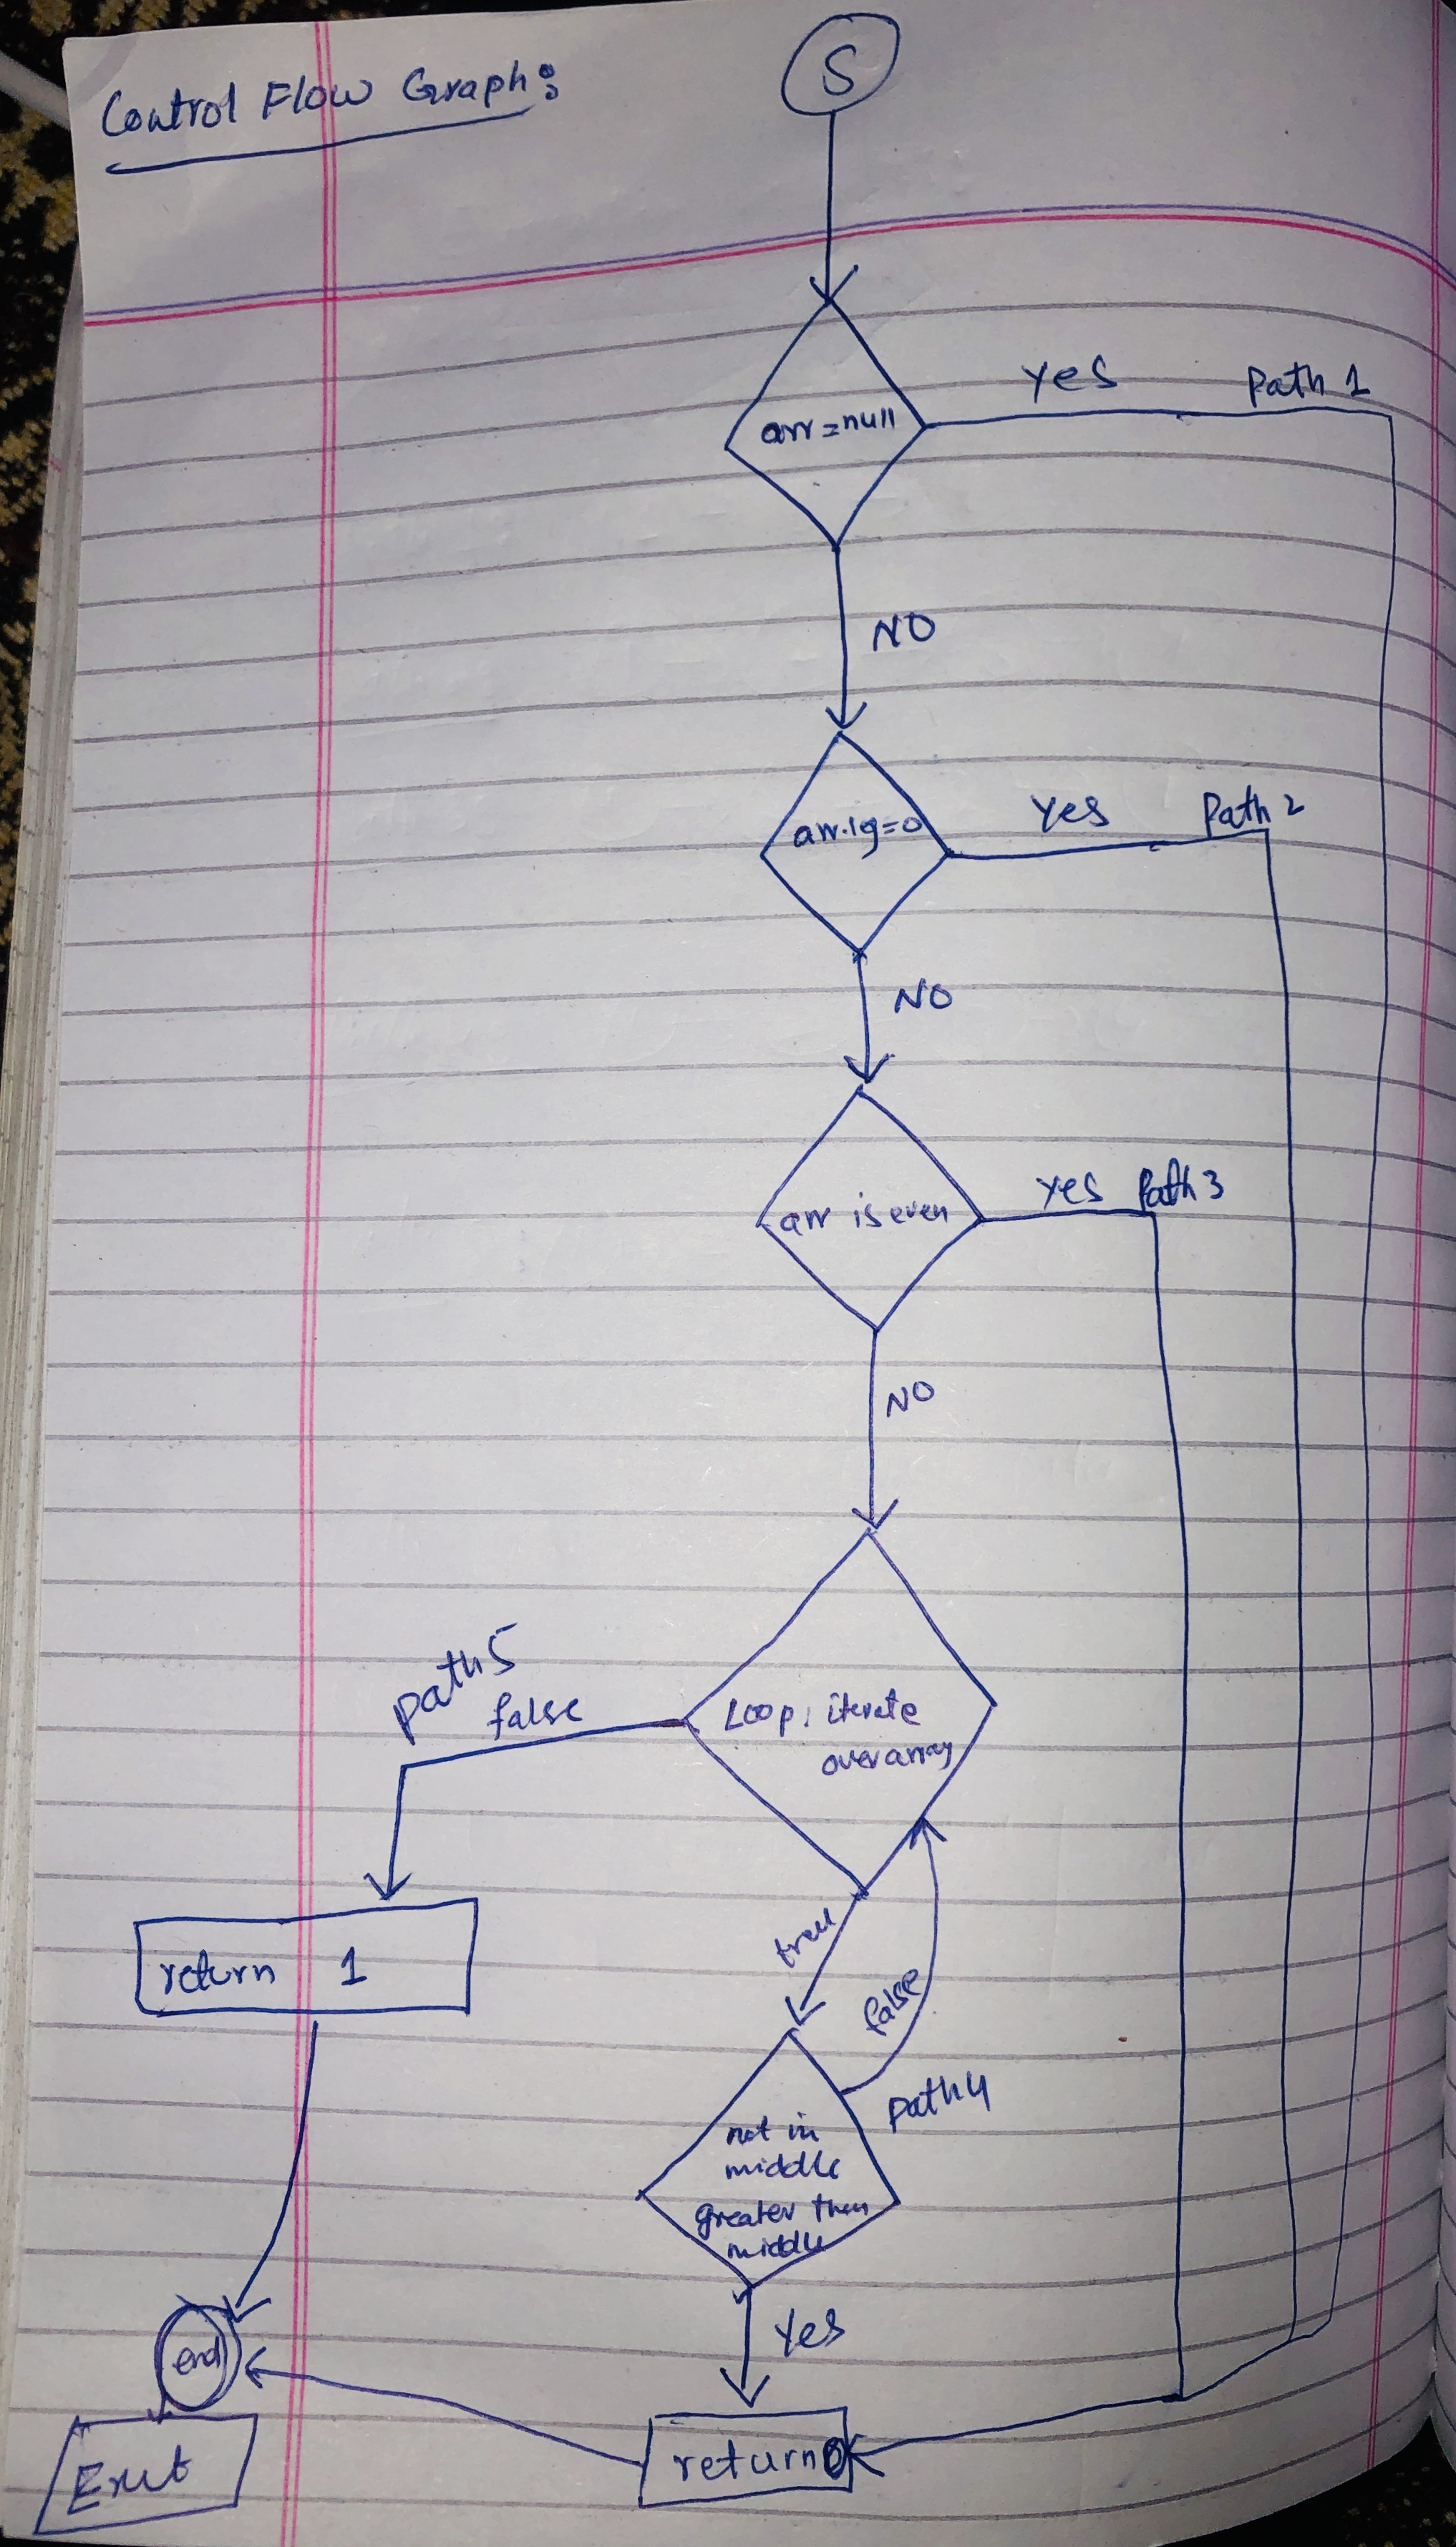 Control Flow Graph:
S
arr=null
Yes
Path 1
NO
arr.lg=0
Yes
Path 2
NO
arr is even
Yes
Path 3
NO
Loop: iterate
over array
path 5
false
true
false
return 1
path 4
not in
middle
greater then
middle
Yes
end
return 0
Exit